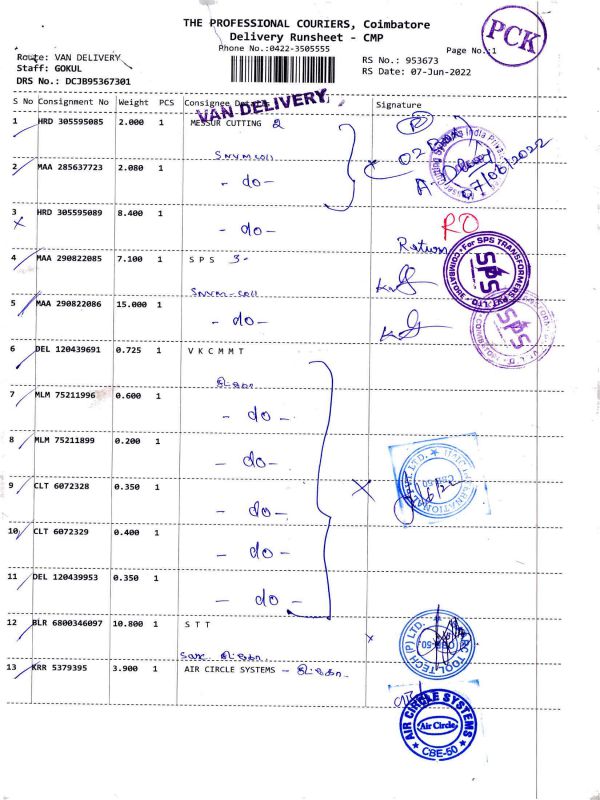 THE PROFESSIONAL COURIERS, Coimbatore
Delivery Runsheet - CMP
Phone No.:0422-3505555
PCK
Page No.:1
Route: VAN DELIVERY
Staff: GOKUL
DRS No.: DCJB95367301
RS No.: 953673
RS Date: 07-Jun-2022
S No Consignment No Weight PCS Consignee Signature
VAN DELIVERY
1 HRD 305595085 2.000 1 MESSUR CUTTING 2
02 Box
07/06/2022
2 MAA 285637723 2.080 1 - do -
3 HRD 305595089 8.400 1 - do -
RD
Return
4 MAA 290822085 7.100 1 S P S 3-
For SPS TRANSFORMERS PVT. LTD. COIMBATORE
SPS
5 MAA 290822086 15.000 1 - do -
SPS
6 DEL 120439691 0.725 1 V K C M M T
7 MLM 75211996 0.600 1 - do -
8 MLM 75211899 0.200 1 - do -
9 CLT 6072328 0.350 1 - do -
10 CLT 6072329 0.400 1 - do -
11 DEL 120439953 0.350 1 - do -
12 BLR 6800346097 10.800 1 S T T
TOOL TECH (P) LTD.
13 KRR 5379395 3.900 1 AIR CIRCLE SYSTEMS -
AIR CIRCLE SYSTEMS
Air Circle
CBE-50